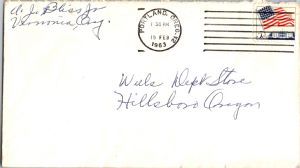 A. J. Bliss Jr
Vernonia, Ory.
PORTLAND, OREG.
1:30 PM
15 FEB
1963
Weils Dept Store
Hillsboro Oregon